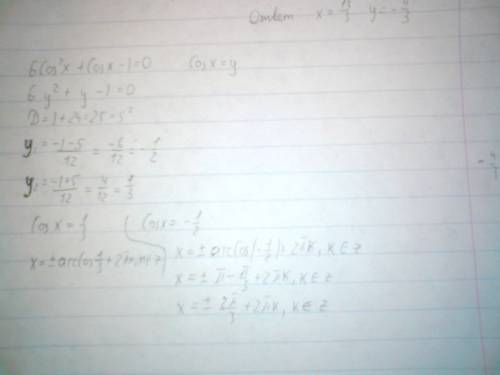 Ответ x = 13/3 y = -4/3
6cos²x + cosx - 1 = 0 cosx = y
6y² + y - 1 = 0
D = 1 + 24 = 25 = 5²
y₁ = (-1-5)/12 = -6/12 = -1/2
y₂ = (-1+5)/12 = 4/12 = 1/3
cosx = 1/3
x = ± arccos 1/3 + 2πn, n∈z
cosx = -1/2
x = ± arccos(-1/2) + 2πk, k∈z
x = ± π - π/3 + 2πk, k∈z
x = ± 2π/3 + 2πk, k∈z